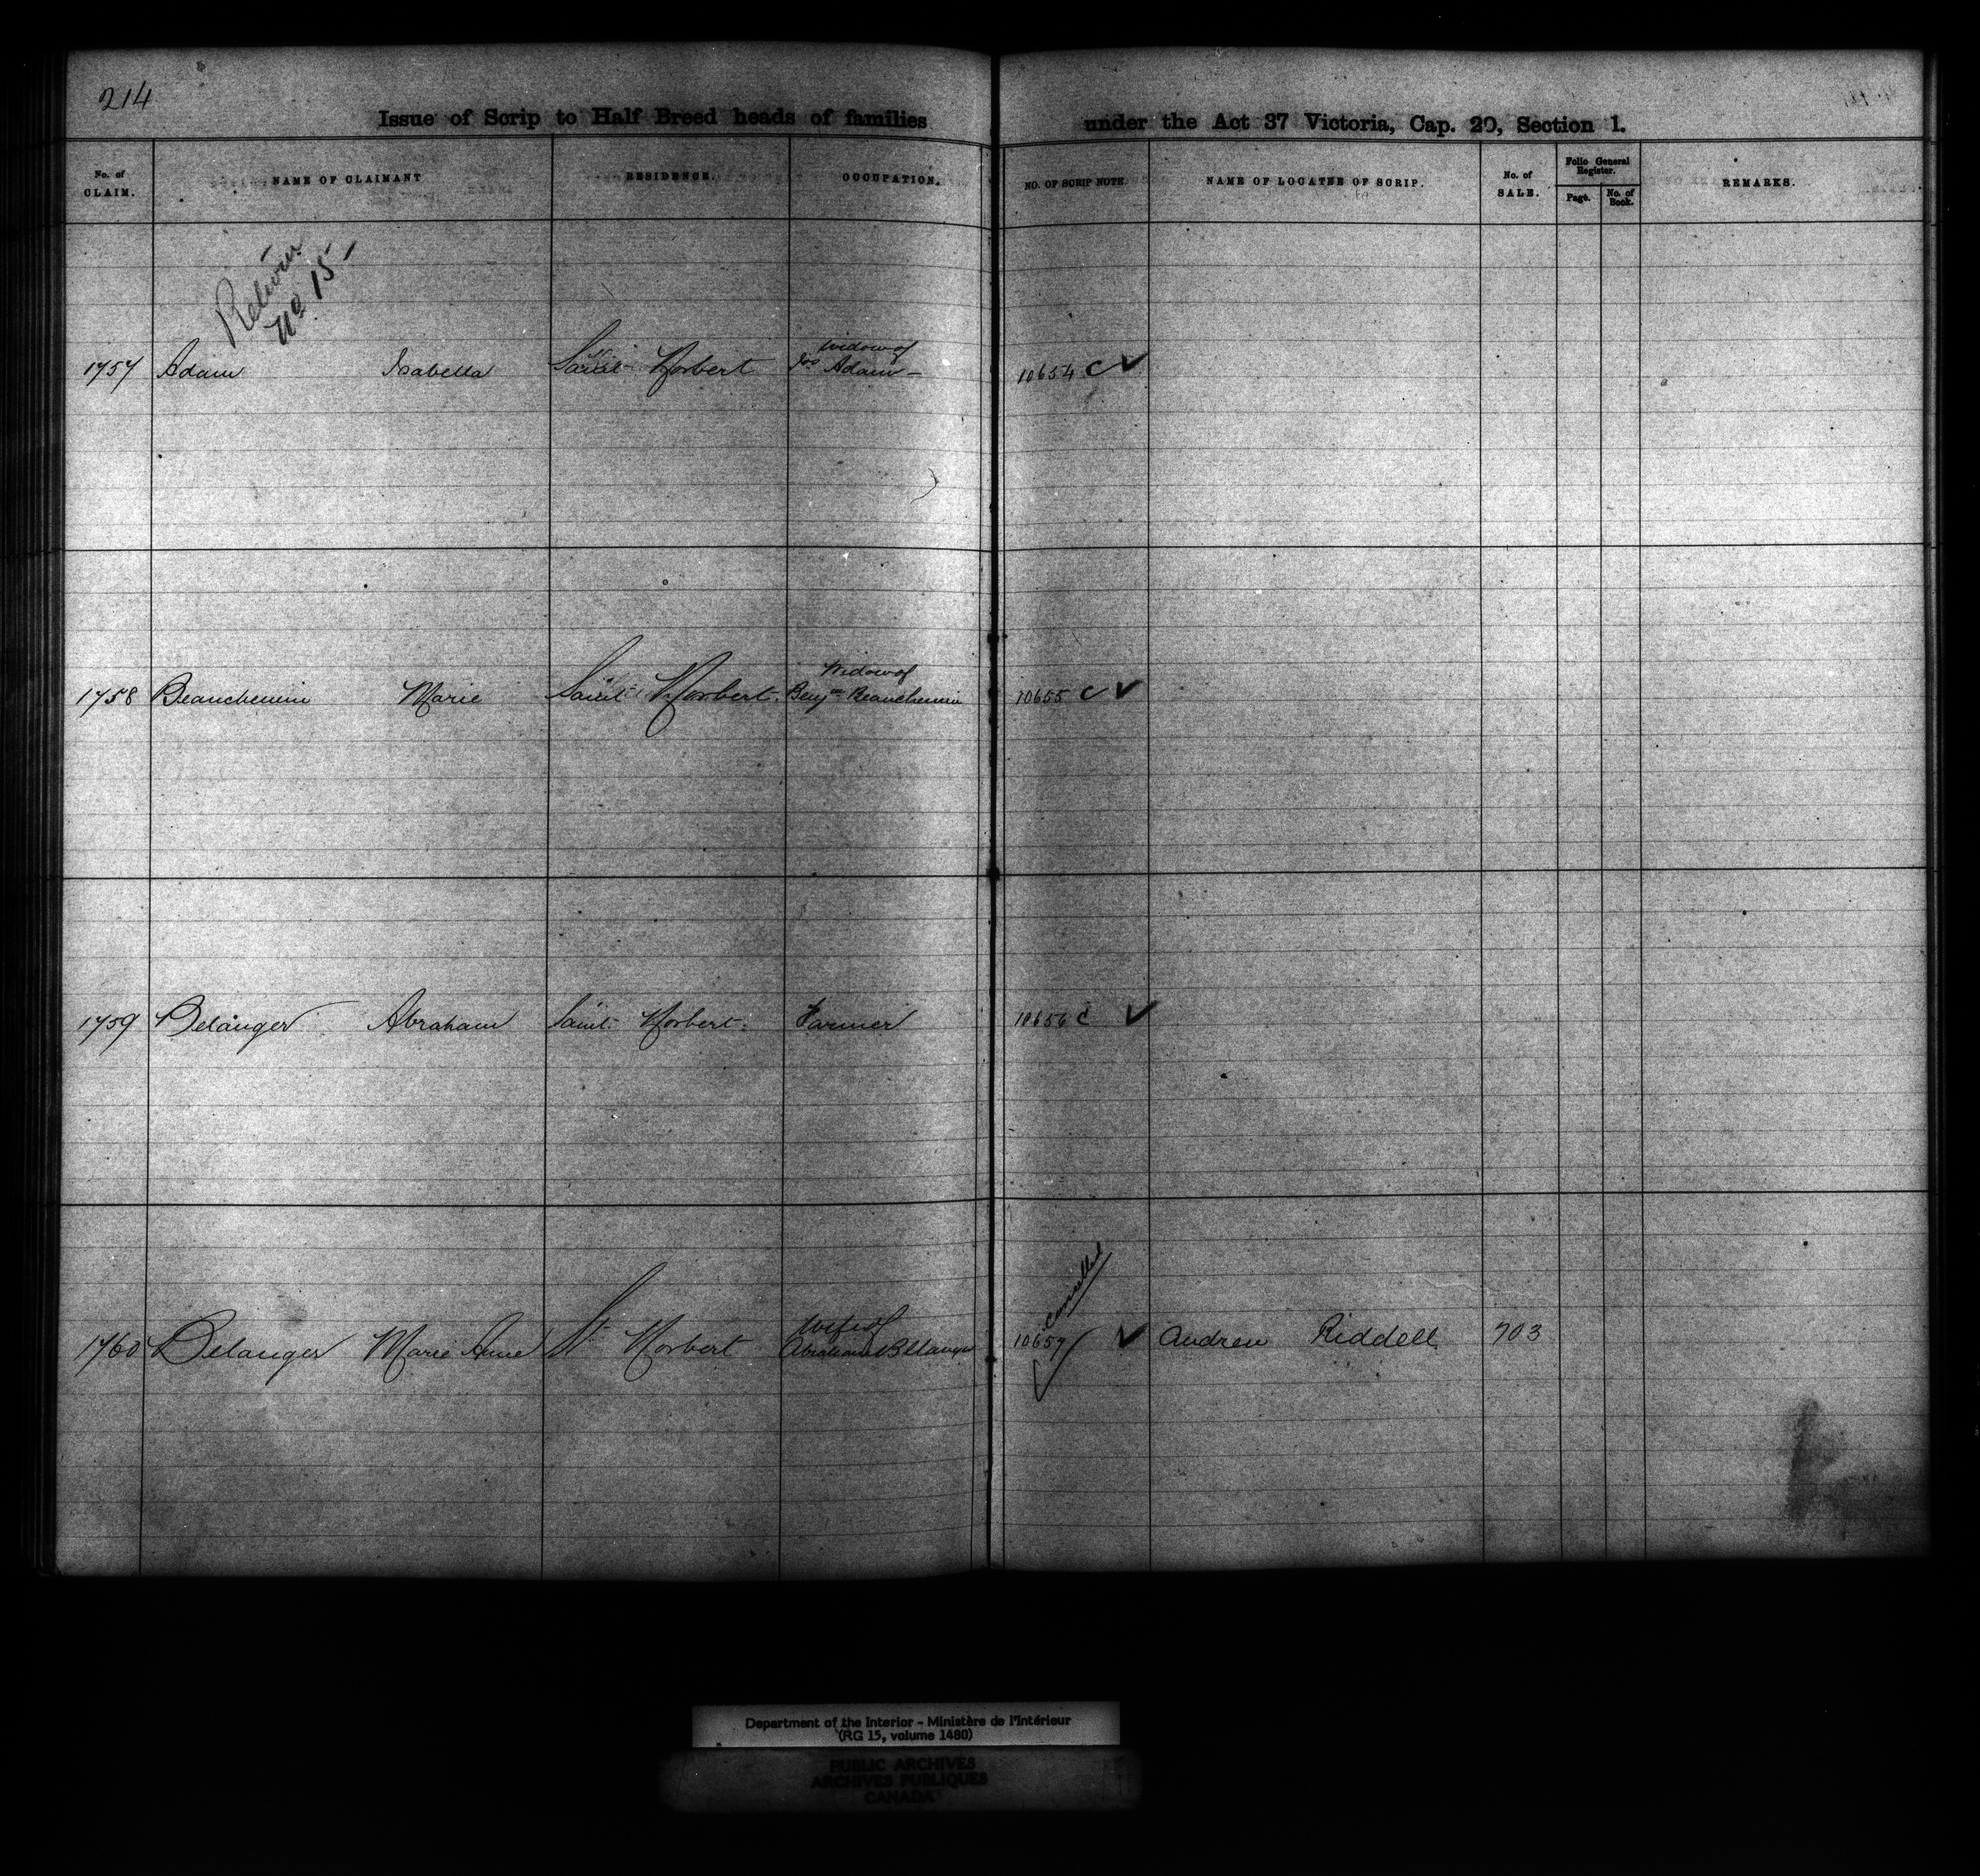 214
Issue of Scrip to Half Breed heads of families under the Act 37 Victoria, Cap. 20, Section 1.
No. of CLAIM. NAME OF CLAIMANT RESIDENCE. OCCUPATION. NO. OF SCRIP NOTE NAME OF LOCATEE OF SCRIP. No. of SALE. Folio General Register. Page. No. of Book. REMARKS.
Return
No 15
Widow of
1757 Adam Isabella Saint Norbert Jos Adam 10654 C ✓
Widow of
1758 Beauchemin Marie Saint Norbert. Benjn Beauchemin 10655 C ✓
1759 Belanger Abraham Saint Norbert. Farmer 10656 C ✓
Cancelled
Wife of
1760 Belanger Marie Anne St Norbert Abraham Belanger 10657 ✓ Andrew Riddell 703
Department of the Interior - Ministère de l'Intérieur
(RG 15, volume 1480)
PUBLIC ARCHIVES
ARCHIVES PUBLIQUES
CANADA